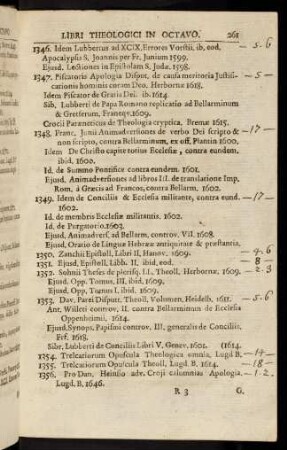 LIBRI THEOLOGICI IN OCTAVO. 261
1346. Idem Lubbertus ad XCIX. Errores Vorstii, ib. eod. - 5-6
Apocalypsis S. Joannis per Fr. Junium 1599.
Ejusd. Lectiones in Epistolam S. Judæ. 1598.
1347. Piscatoris Apologia Disput. de causa meritoria Justifi-
cationis hominis coram Deo. Herbornæ 1618.
Idem Piscator de Gratia Dei. ib. 1614.
Sib. Lubberti de Papa Romano replicatio ad Bellarminum
& Gretserum, Franeqr. 1609.
Crocii Parænaticus de Theologia cryptica. Bremæ 1615.
1348. Franc. Junii Animadversiones de verbo Dei scripto & - 17 -
non scripto, contra Bellarminum, ex off. Plantin 1600.
Idem De Christo capite totius Ecclesiæ, contra eundem.
ibid. 1600.
Id. de Summo Pontifice contra eundem. 1601.
Ejusd. Animadversiones ad libros III. de translatione Imp.
Rom. à Græcis ad Francos, contra Bellarm. 1602.
1349. Idem de Conciliis & Ecclesia militante, contra eund. - 17 -
1602.
Id. de membris Ecclesiæ militantis. 1602.
Id. de Purgatorio. 1603.
Ejusd. Animadvers. ad controv. VII. 1608.
Ejusd. Oratio de Linguæ Hebrææ antiquitate & præstantia.
1350. Zanchii Epistoll, Libri II, Hanov. 1609. - 4-6
1351. Ejusd. Epistoll, Libb. II. ibid. eod. - 8 -
1352. Sohnii Theses de plerisq. LL. Theoll. Herbornæ, 1609. - 2-3
Ejusd. Opp. Tomus III. ibid. 1609.
Ejusd. Opp. Tomus I. ibid. 1609.
1353. Dav. Parei Disput. Theoll. Volumen, Heidelb. 1611. - 5-6
Ant. Willeti controv. II. contra Bellarminum de Ecclesia
Oppenheimii, 1614.
Ejusd. Synops. Papismi controv. III. generalis de Conciliis,
Frf. 1618.
Sibr. Lubberti de Conciliis Libri V. Genev. 1601. (1614.
1354. Trelcatiorum Opuscula Theologica omnia, Lugd. B. - 14 -
1355. Trelcatiorum Opuscula Theoll. Lugd. B. 1614. - 18 -
1356. Pro Dan. Heinsio adv. Croji calumnias Apologia. - 1-2
Lugd. B. 1646.
R 3 G.